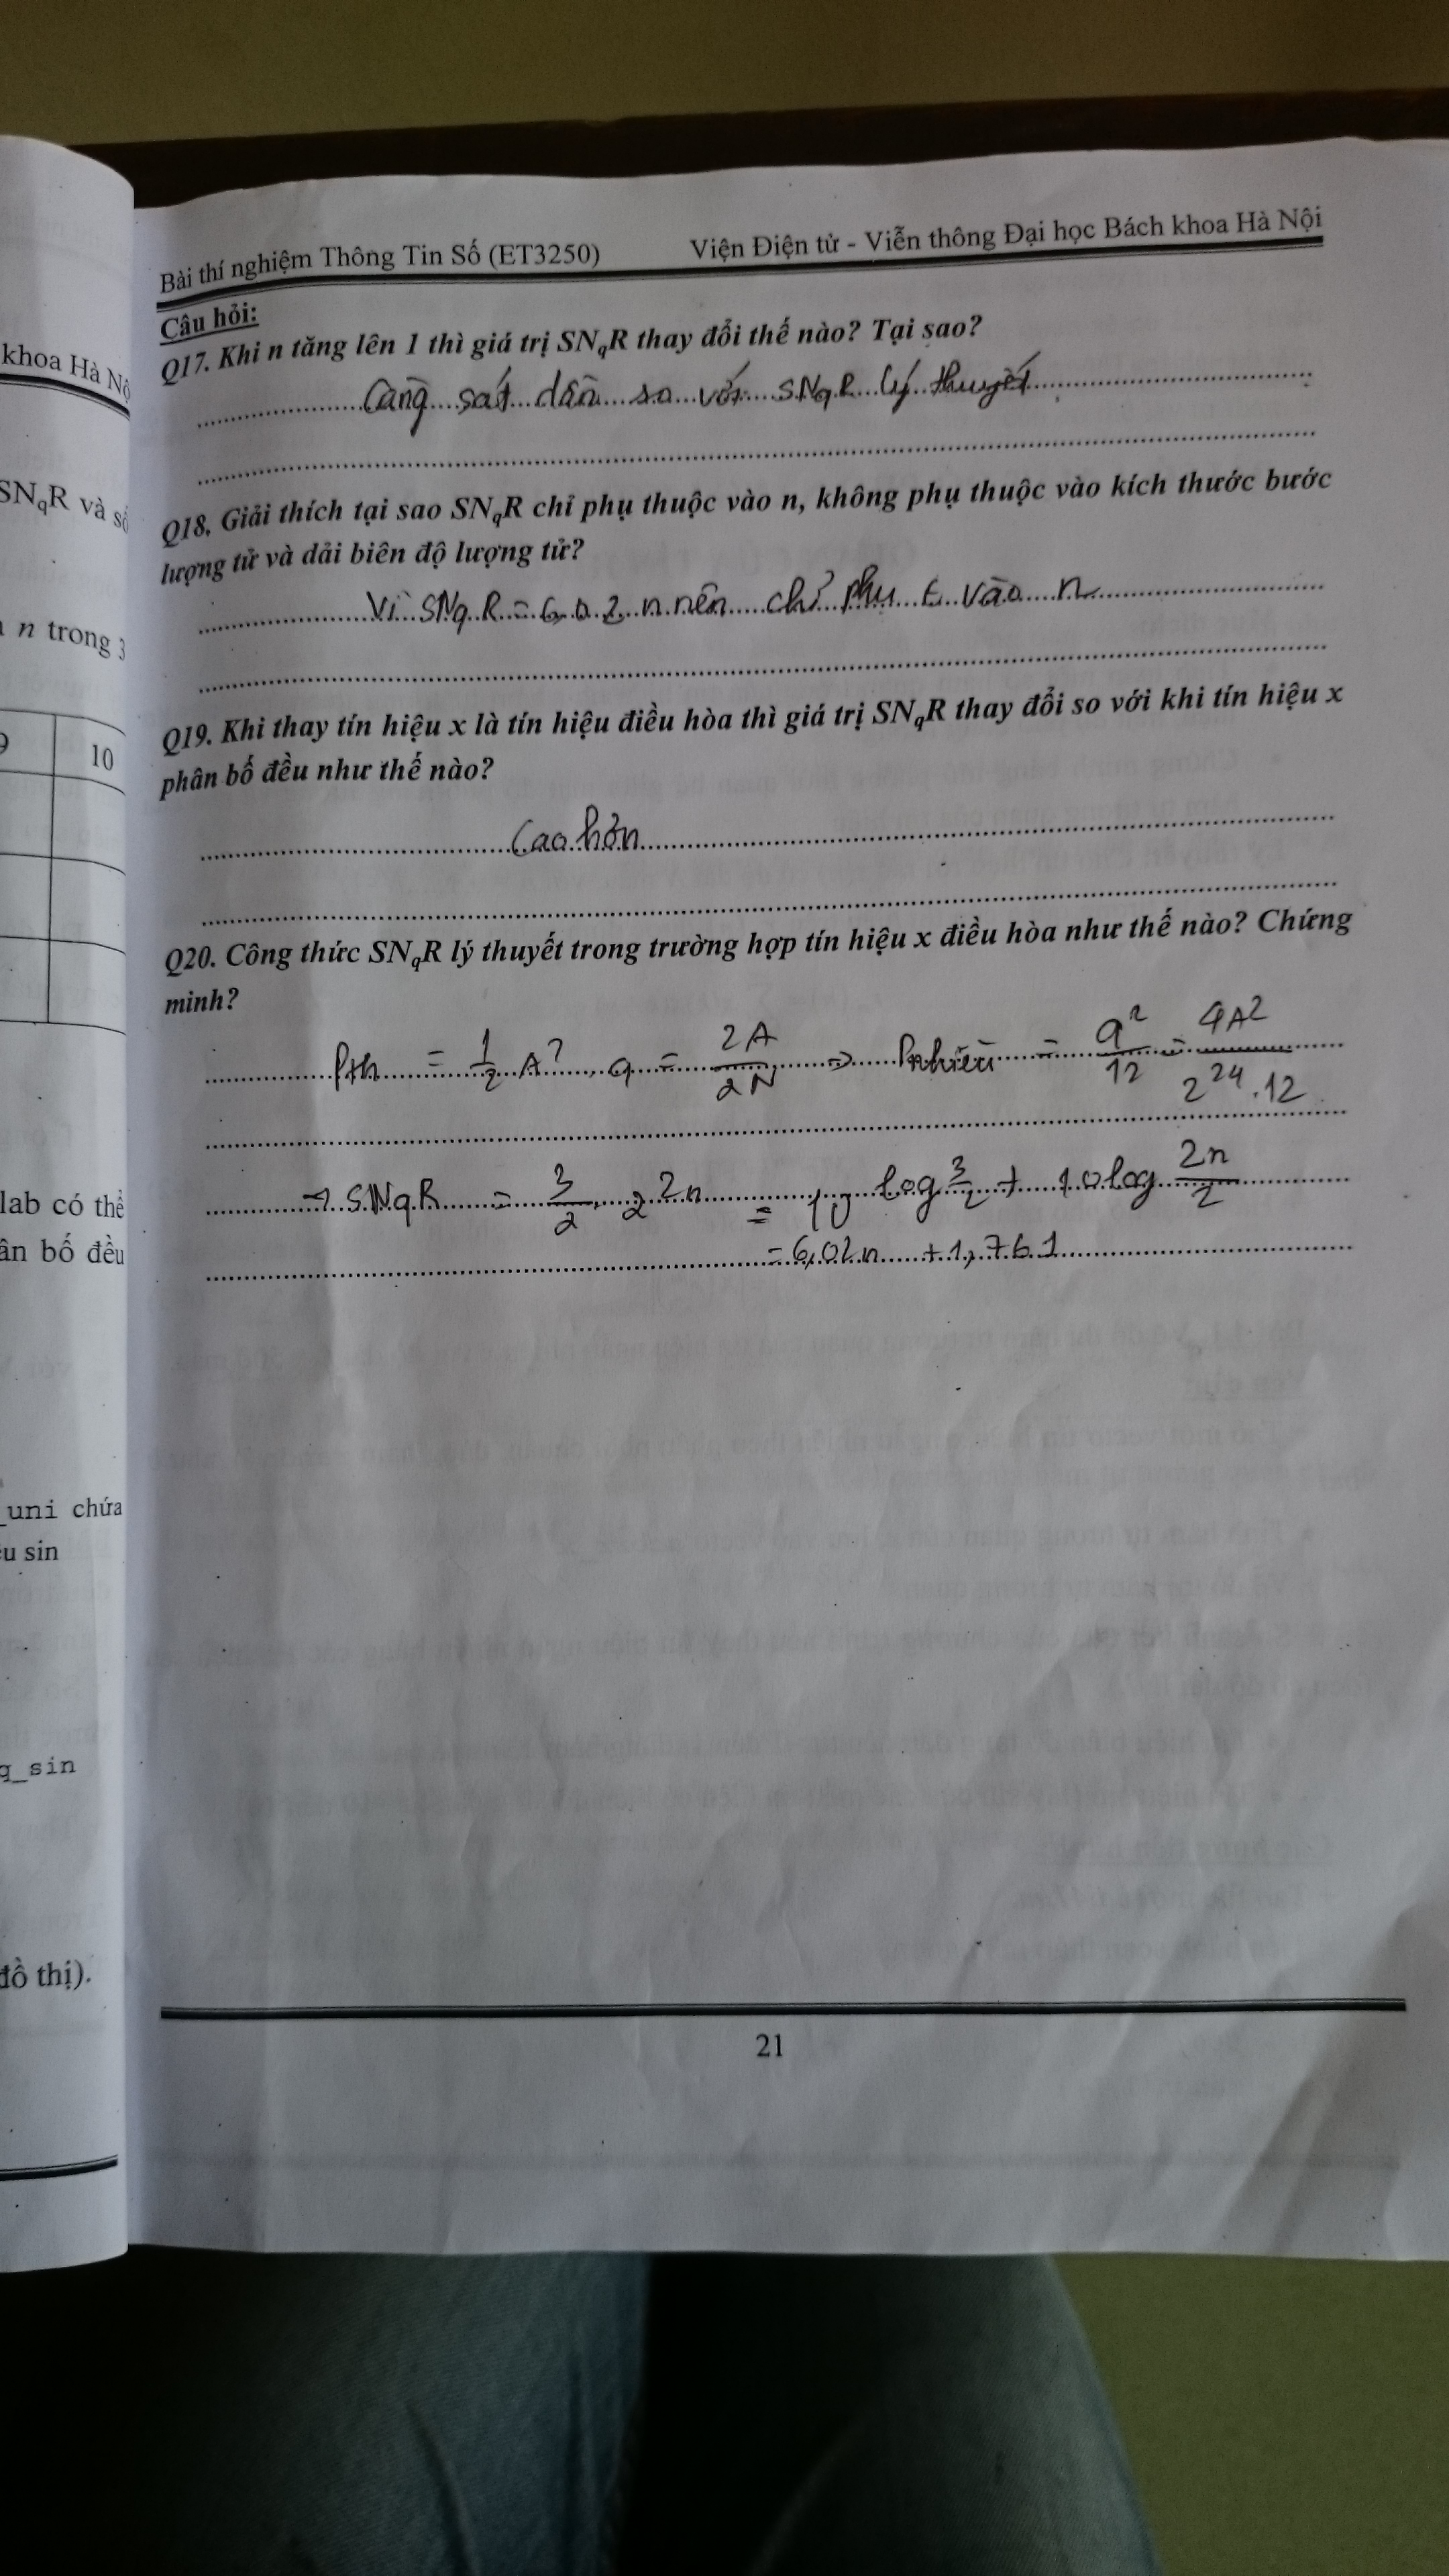 khoa Hà Nộ
SNqR và số
n trong 3
10
lab có thể
ân bố đều
_uni chứa
u sin
q_sin
đồ thị).
Bài thí nghiệm Thông Tin Số (ET3250) Viện Điện tử - Viễn thông Đại học Bách khoa Hà Nội
Câu hỏi:
Q17. Khi n tăng lên 1 thì giá trị SNqR thay đổi thế nào? Tại sao?
Càng sát dần so với SNqR lý thuyết
Q18. Giải thích tại sao SNqR chỉ phụ thuộc vào n, không phụ thuộc vào kích thước bước
lượng tử và dải biên độ lượng tử?
Vì SNqR = 6,02 n nên chỉ phụ t vào n
Q19. Khi thay tín hiệu x là tín hiệu điều hòa thì giá trị SNqR thay đổi so với khi tín hiệu x
phân bố đều như thế nào?
Cao hơn
Q20. Công thức SNqR lý thuyết trong trường hợp tín hiệu x điều hòa như thế nào? Chứng
minh?
Pth = 1/2 A², q = 2A/2N => Pnhiễu = q²/12 = 4A²/2^24.12
→ SNqR = 3/2 . 2^2n = 10 log 3/2 + 10log 2n/2
= 6,02n + 1,761
21